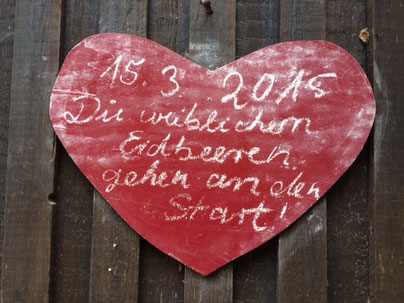 15. 3. 2015
Die weiblichern
Erdbeeren
gehen an den
Start!